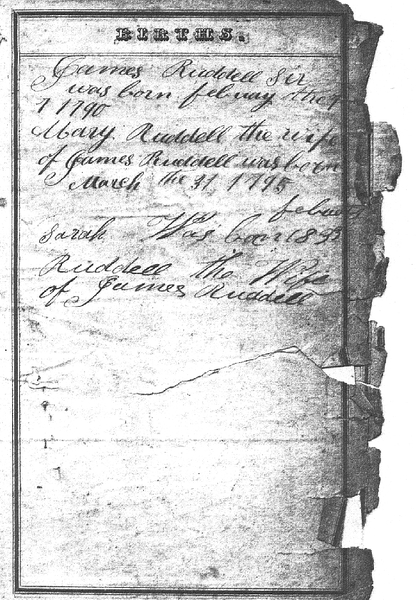 BIRTHS.
James Ruddell Sir
was born febuay the
1 1790
Mary. Ruddell the wife
of James Ruddell was born
March the 31, 1795
febuary
Sarah Was born
Ruddell the Wife
of James Ruddell